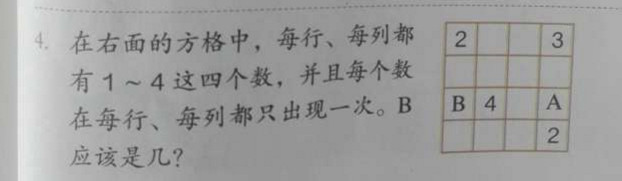 4. 在右面的方格中，每行、每列都
有1～4这四个数，并且每个数
在每行、每列都只出现一次。B
应该是几？
2 3
B 4 A
2